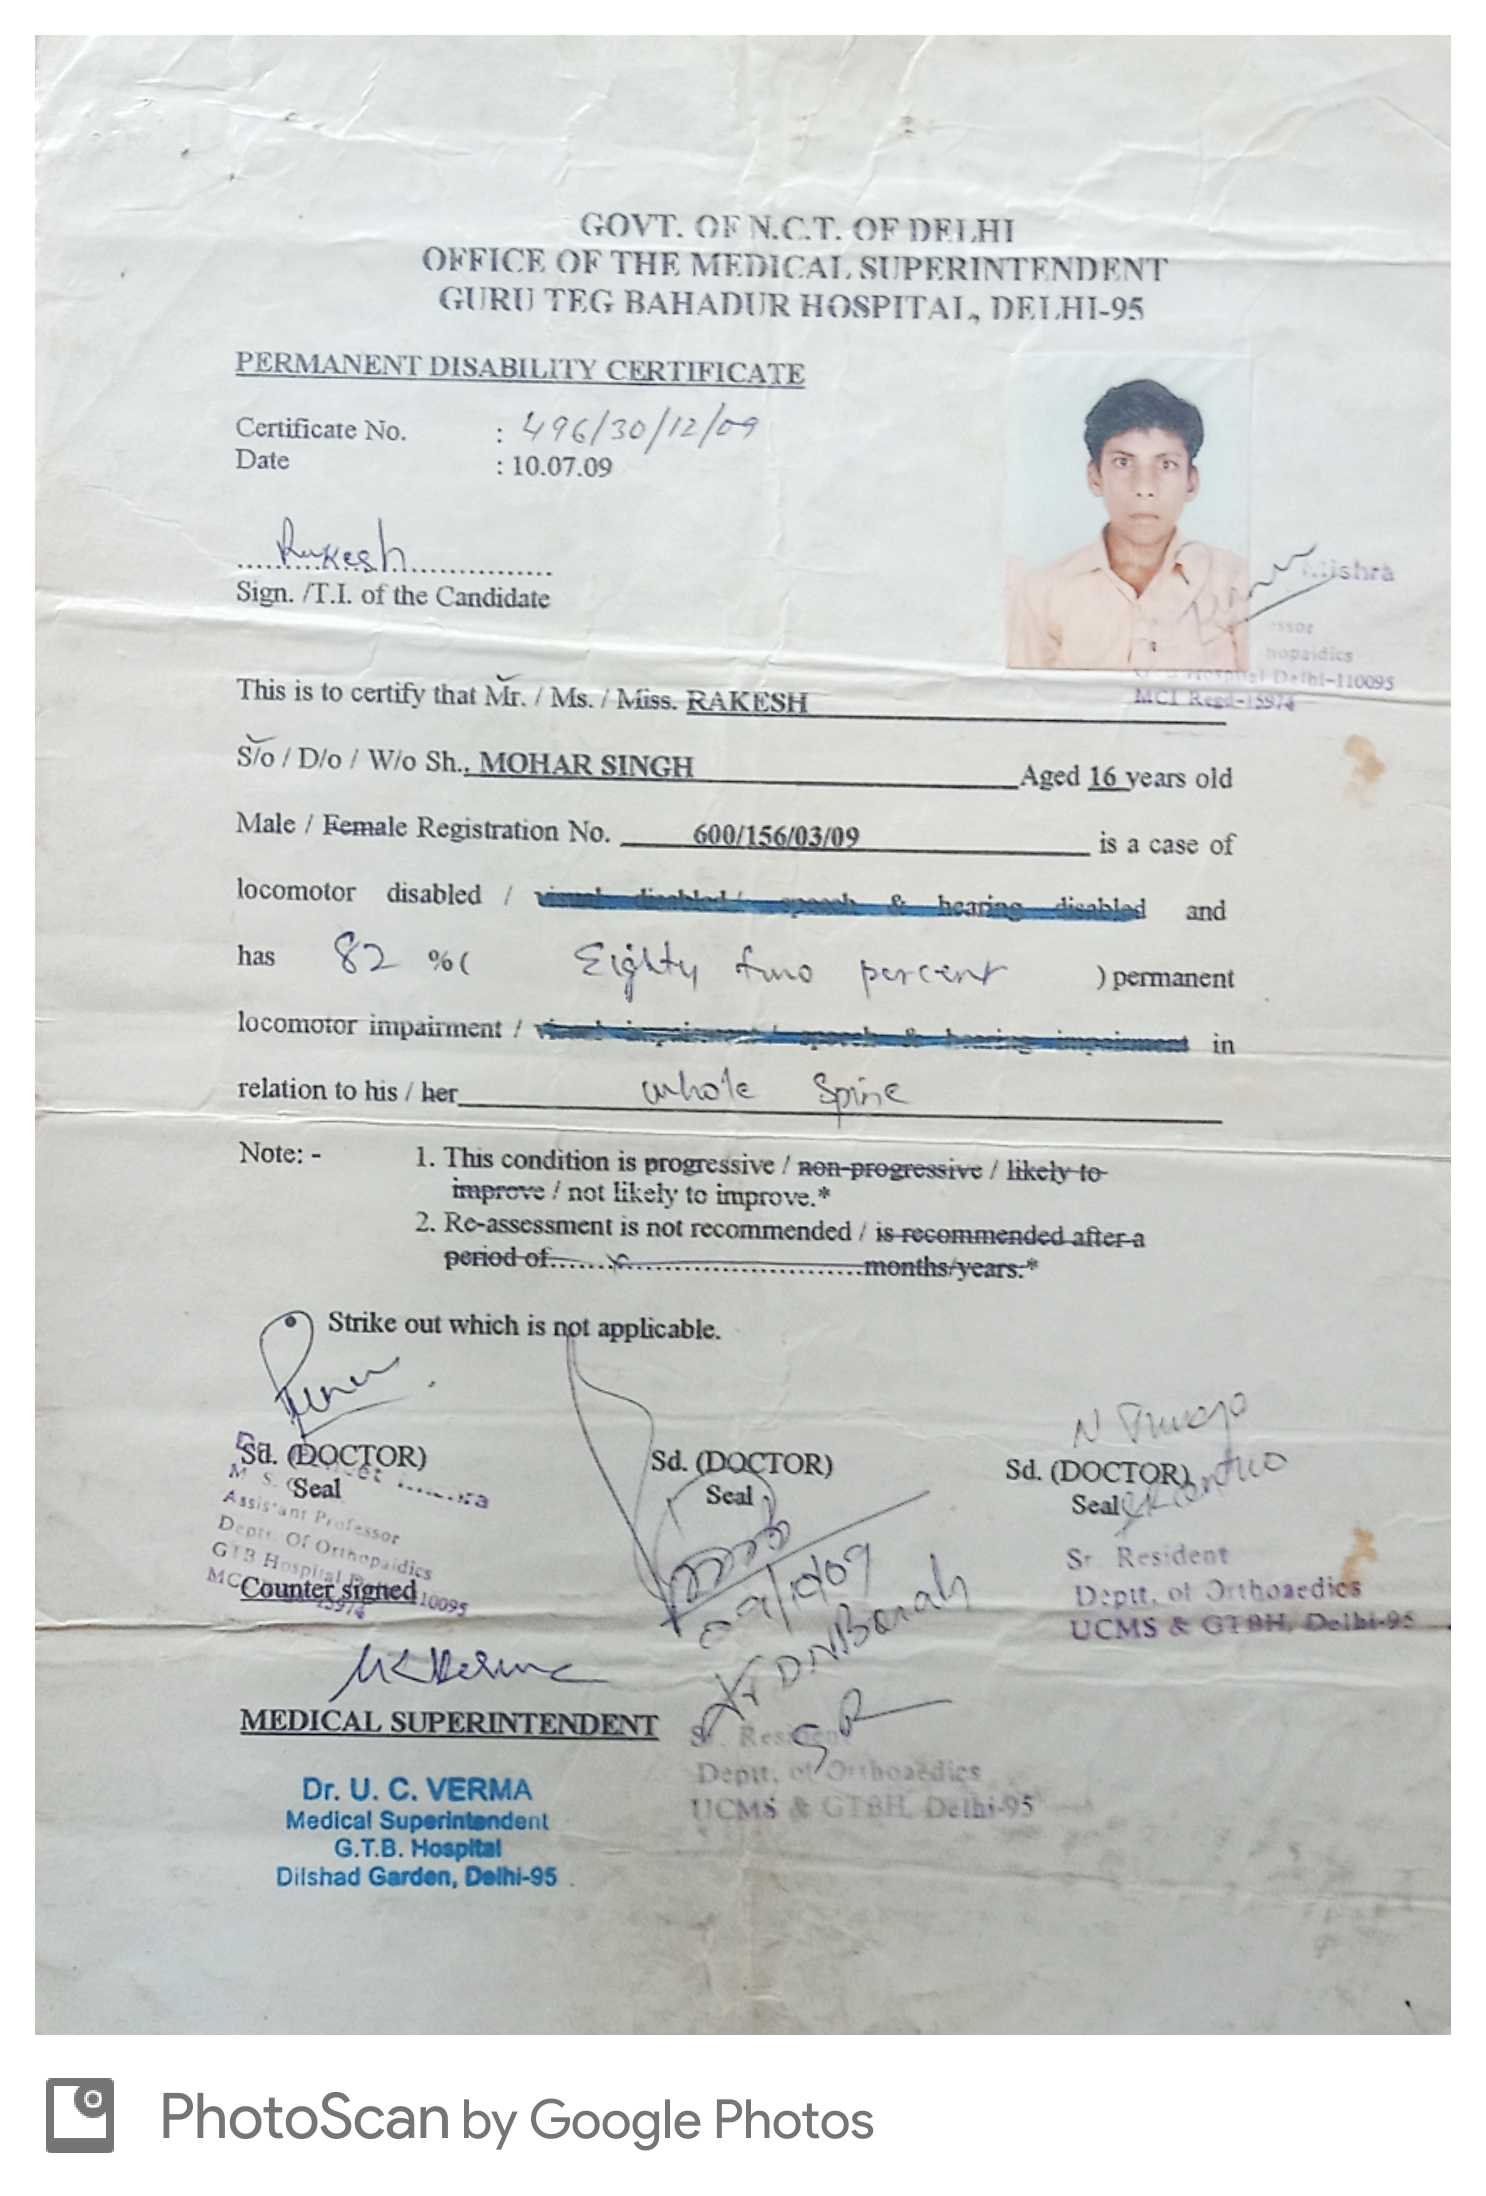 GOVT. OF N.C.T. OF DELHI
OFFICE OF THE MEDICAL SUPERINTENDENT
GURU TEG BAHADUR HOSPITAL, DELHI-95
PERMANENT DISABILITY CERTIFICATE
Certificate No. : 496/30/12/09
Date : 10.07.09
Rakesh
Sign. /T.I. of the Candidate
Mishra
hopaidics
Hospital Delhi-110095
MCI Regd-15974
This is to certify that Mr. / Ms. / Miss. RAKESH
S/o / D/o / W/o Sh., MOHAR SINGH Aged 16 years old
Male / Female Registration No. 600/156/03/09 is a case of
locomotor disabled / visual disabled / speech & hearing disabled and
has 82 %( Eighty two percent ) permanent
locomotor impairment / visual impairment / speech & hearing impairment in
relation to his / her whole Spine
Note: - 1. This condition is progressive / non-progressive / likely to
improve / not likely to improve.*
2. Re-assessment is not recommended / is recommended after a
period of.................................months/years.*
Strike out which is not applicable.
Sd. (DOCTOR) Sd. (DOCTOR) Sd. (DOCTOR)
Seal Seal Seal
M. S.
Assistant Professor
Deptt. Of Orthopaidics
GTB Hospital 110095
15974
Counter signed
Sr. Resident
Deptt. of Orthoaedics
UCMS & GTBH, Delhi-95
Dr D N Borah
SR
MEDICAL SUPERINTENDENT
Sr. Resident
Deptt. of Orthoaedics
UCMS & GTBH, Delhi-95
Dr. U. C. VERMA
Medical Superintendent
G.T.B. Hospital
Dilshad Garden, Delhi-95
PhotoScan by Google Photos